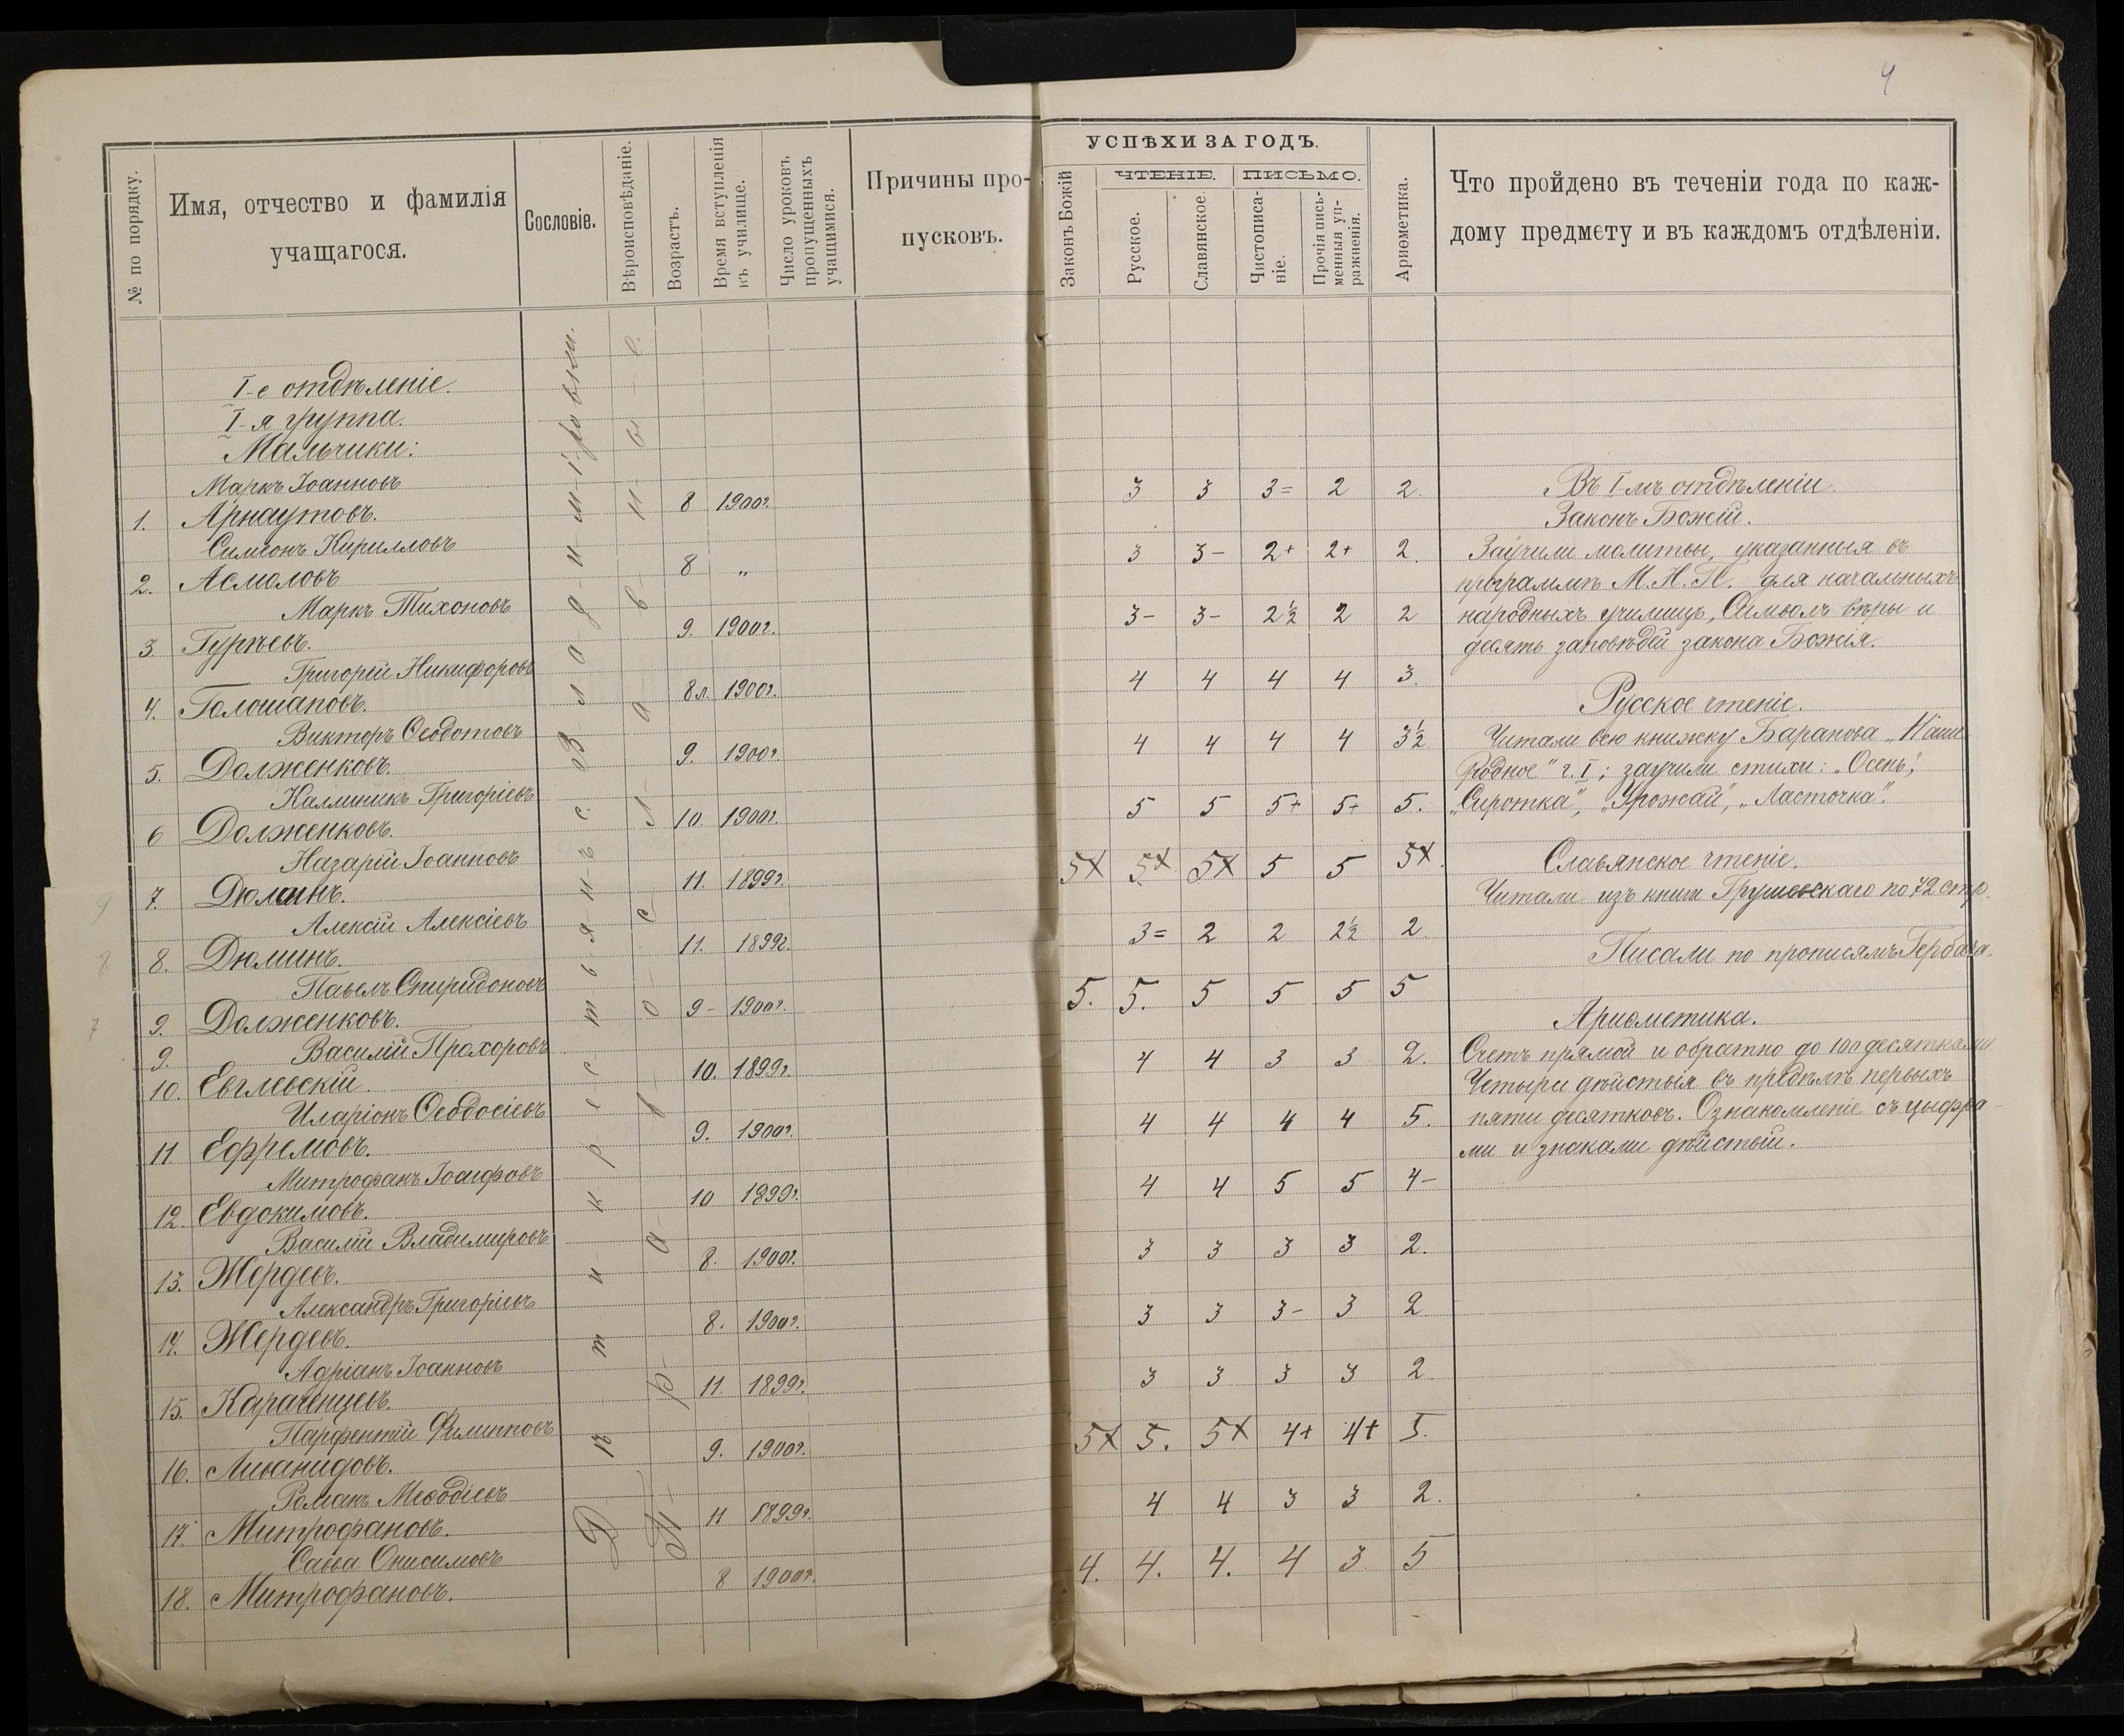 4
№ по порядку.
Имя, отчество и фамилія
учащагося.
Сословіе.
Вѣроисповѣданіе.
Возрастъ.
Время вступленія
въ училище.
Число уроковъ
пропущенныхъ
учащимися.
Причины про-
пусковъ.
УСПѢХИ ЗА ГОДЪ.
Законъ Божій
ЧТЕНІЕ.
Русское.
Славянское.
ПИСЬМО.
Чистописа-
ніе.
Прочія пись-
менныя уп-
ражненія.
Ариѳметика.
Что пройдено въ теченіи года по каж-
дому предмету и въ каждомъ отдѣленіи.
I-е отдѣленіе.
I-я группа.
Мальчики:
Маркъ Іоанновъ
1. Арнаутовъ. 8 1900г. 3 3 3= 2 2.
Симеонъ Кирилловъ
2. Асмоловъ 8 „ 3 3- 2+ 2+ 2.
Маркъ Тихоновъ
3. Гурьевъ. 9. 1900г. 3- 3- 2½ 2 2
Григорій Никифоровъ
4. Голошаповъ. 8л. 1900г. 4 4 4 4 3.
Викторъ Ѳеодотовъ
5. Долженковъ. 9. 1900г. 4 4 4 4 3½
Каллиникъ Григоріевъ
6 Долженковъ. 10. 1900г. 5 5 5+ 5+ 5.
Назарій Іоанновъ
7. Дюминъ. 11. 1899г. 5+ 5+ 5+ 5 5 5+.
Алексій Алексіевъ
8. Дюминъ. 11. 1899г. 3= 2 2 2½ 2
Павелъ Спиридоновъ
9. Долженковъ. 9- 1900г. 5. 5. 5 5 5 5
9. Василій Прохоровъ
10. Евглевскій. 10. 1899г. 4 4 3 3 2.
Иларіонъ Ѳеодосіевъ
11 Ефремовъ. 9. 1900г. 4 4 4 4 5.
Митрофанъ Іоасифовъ
12. Евдокимовъ. 10 1899г. 4 4 5 5 4-
Василій Владимировъ
13. Жердевъ. 8. 1900г. 3 3 3 3 2.
Александръ Григоріевъ
14. Жердевъ. 8. 1900г. 3 3 3- 3 2
Адріанъ Іоанновъ
15. Караченцевъ. 11 1899г. 3 3 3 3 2
Парфентій Филипповъ
16. 9. 1900г. 5+ 5. 5+ 4+ 4+ 5.
Романъ Меѳодіевъ
17. Митрофановъ. 11 1899г. 4 4 3 3 2.
Савва Онисимовъ
18. Митрофановъ. 8 1900г. 4. 4. 4. 4 3 5
Дѣти крестьянъ с.
Православное
9
8
7
Въ I-мъ отдѣленіи.
Законъ Божій.
Заучили молитвы, указанныя въ
программѣ М. Н. П. для начальныхъ
народныхъ училищъ, Символъ вѣры и
десять заповѣдей закона Божія.
Русское чтеніе.
Читали всю книжку Баранова „Наше
Родное" г. I; заучили стихи: „Осень",
„Сиротка", „Урожай", „Ласточка".
Славянское чтеніе.
Читали изъ книги Грушевскаго по 72 стр.
Писали по прописямъ Гербача.
Ариѳметика.
Счетъ прямой и обратно до 100 десятками
Четыри дѣйствія въ предѣлѣ первыхъ
пяти десятковъ. Ознакомленіе съ цыфра-
ми и знаками дѣйствій.